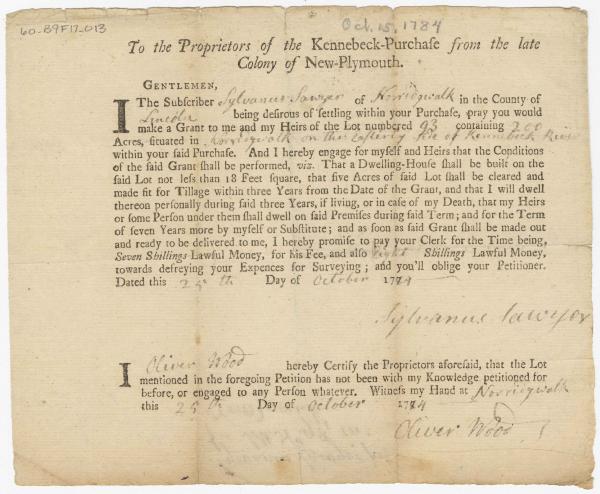 60-B9F17-013
Oct. 15, 1784
To the Proprietors of the Kennebeck-Purchase from the late
Colony of New-Plymouth.
GENTLEMEN,
I The Subscriber Sylvanus Sawyer of Norridgwalk in the County of
Lincoln being desirous of settling within your Purchase, pray you would
make a Grant to me and my Heirs of the Lot numbered 93 containing 200
Acres, situated in Norridgwalk on the Easterly Side of Kennebeck River
within your said Purchase. And I hereby engage for myself and Heirs that the Conditions
of the said Grant shall be performed, viz. That a Dwelling-House shall be built on the
said Lot not less than 18 Feet square, that five Acres of said Lot shall be cleared and
made fit for Tillage within three Years from the Date of the Grant, and that I will dwell
thereon personally during said three Years, if living, or in case of my Death, that my Heirs
or some Person under them shall dwell on said Premises during said Term; and for the Term
of seven Years more by myself or Substitute; and as soon as said Grant shall be made out
and ready to be delivered to me, I hereby promise to pay your Clerk for the Time being,
Seven Shillings Lawful Money, for his Fee, and also eight Shillings Lawful Money,
towards defreying your Expences for Surveying; and you'll oblige your Petitioner.
Dated this 25th Day of October 1774
Sylvanus Sawyer
I Oliver Wood hereby Certify the Proprietors aforesaid, that the Lot
mentioned in the foregoing Petition has not been with my Knowledge petitioned for
before, or engaged to any Person whatever. Witness my Hand at Norridgwalk
this 25th Day of October 1774
Oliver Wood